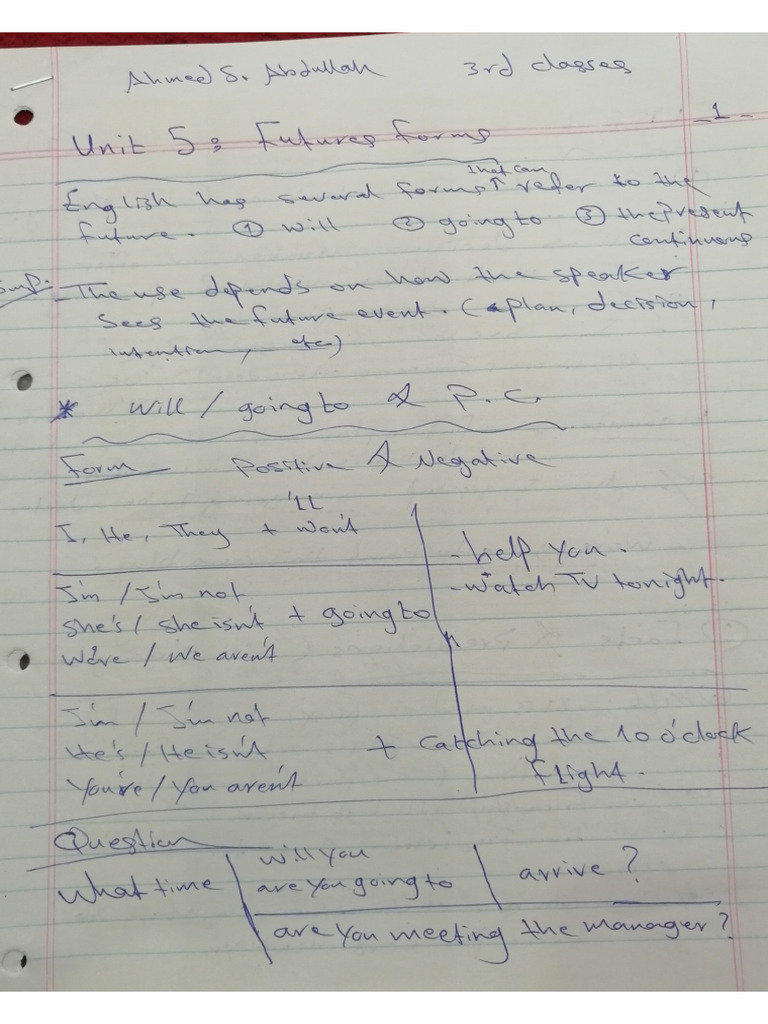 Ahmed S. Abdullah 3rd classes
- 1 -
Unit 5: Futures forms
English has several forms that can refer to the
future. ① will ② going to ③ the present
continuous
Imp: - The use depends on how the speaker
sees the future event. (plan, decision,
intention, etc)
* Will / going to & P.C.
Form Positive & Negative
I, He, They + 'll won't
- help you.
- watch TV tonight.
I'm / I'm not
She's / She isn't + going to
We're / We aren't
I'm / I'm not
He's / He isn't + catching the 10 o'clock
You're / You aren't flight.
Question
What time will you
are you going to arrive?
are you meeting the manager?